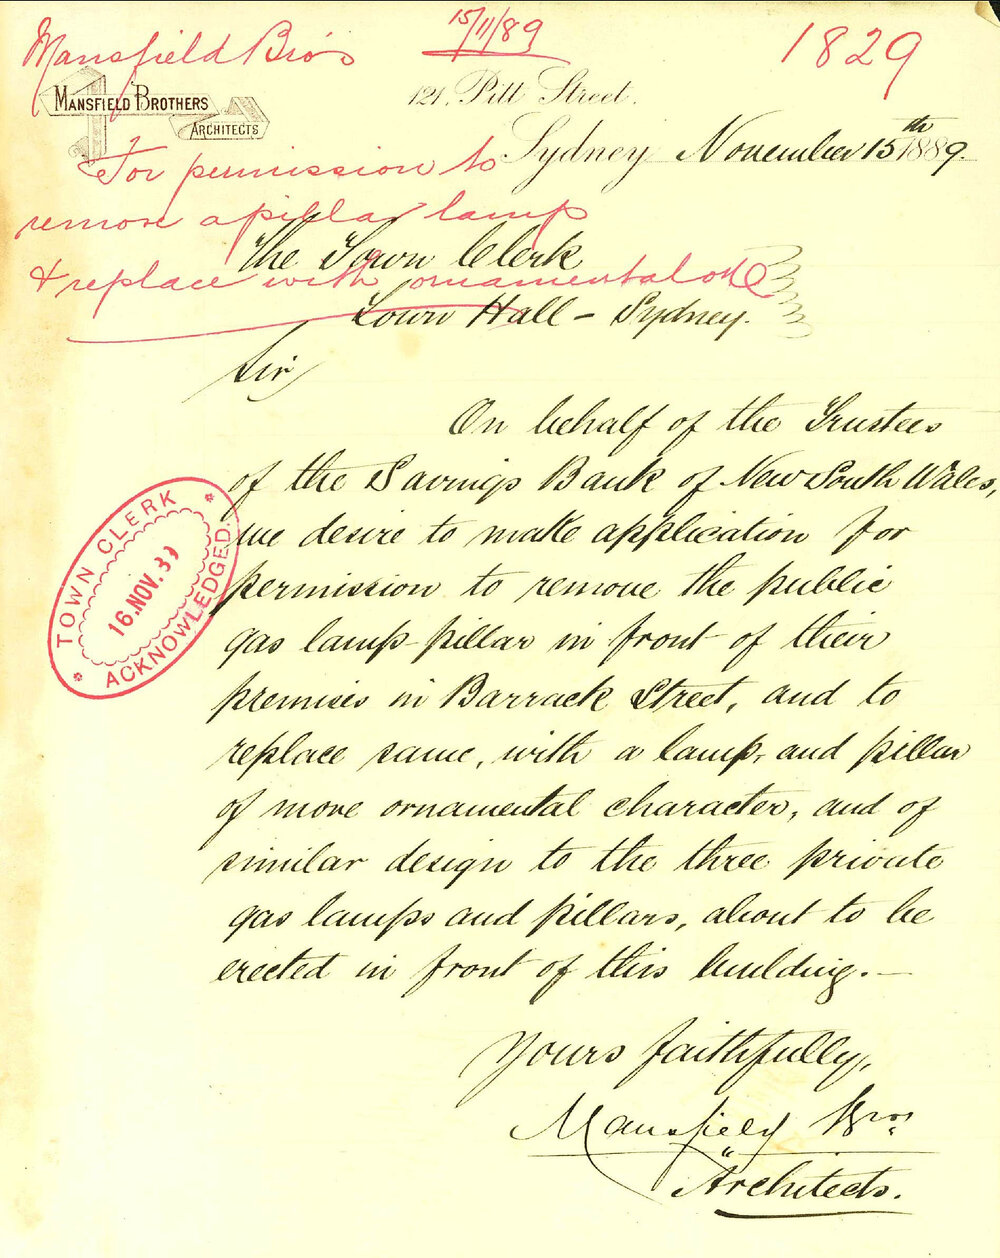 Mansfield Bros
15/11/89
1829
MANSFIELD BROTHERS
ARCHITECTS
121. Pitt Street.
Sydney November 15th 1889.
For permission to
remove a pillar lamp
& replace with ornamental one
The Town Clerk
Town Hall – Sydney.
Sir
On behalf of the Trustees
of the Savings Bank of New South Wales,
we desire to make application for
permission to remove the public
gas lamp-pillar in front of their
premises in Barrack Street, and to
replace same, with a lamp, and pillar
of more ornamental character, and of
similar design to the three private
gas lamps and pillars, about to be
erected in front of this building.—
TOWN CLERK
16.NOV.89
ACKNOWLEDGED.
Yours faithfully,
Mansfield Bros
Architects.